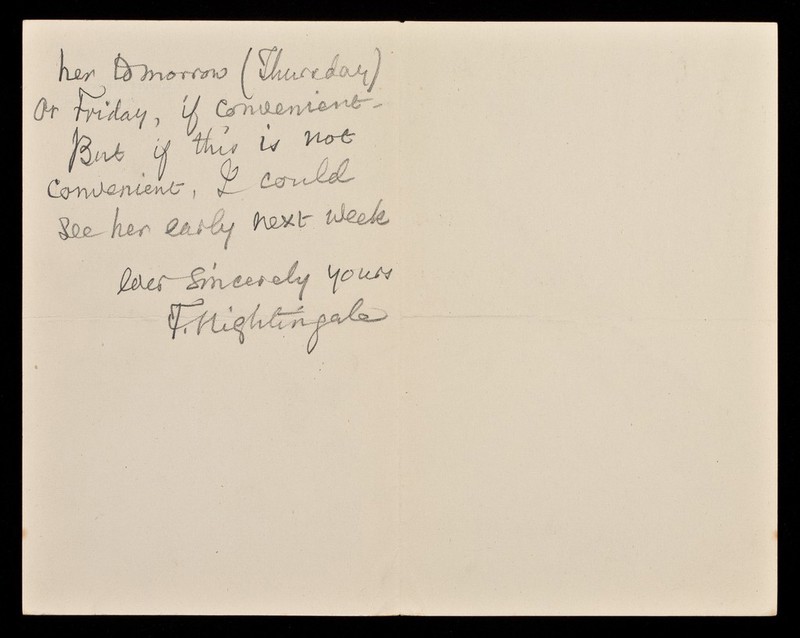 her tomorrow (Thursday)
or Friday, if convenient-
But if this is not
convenient, I could
see her early next week
ever sincerely yours
F. Nightingale